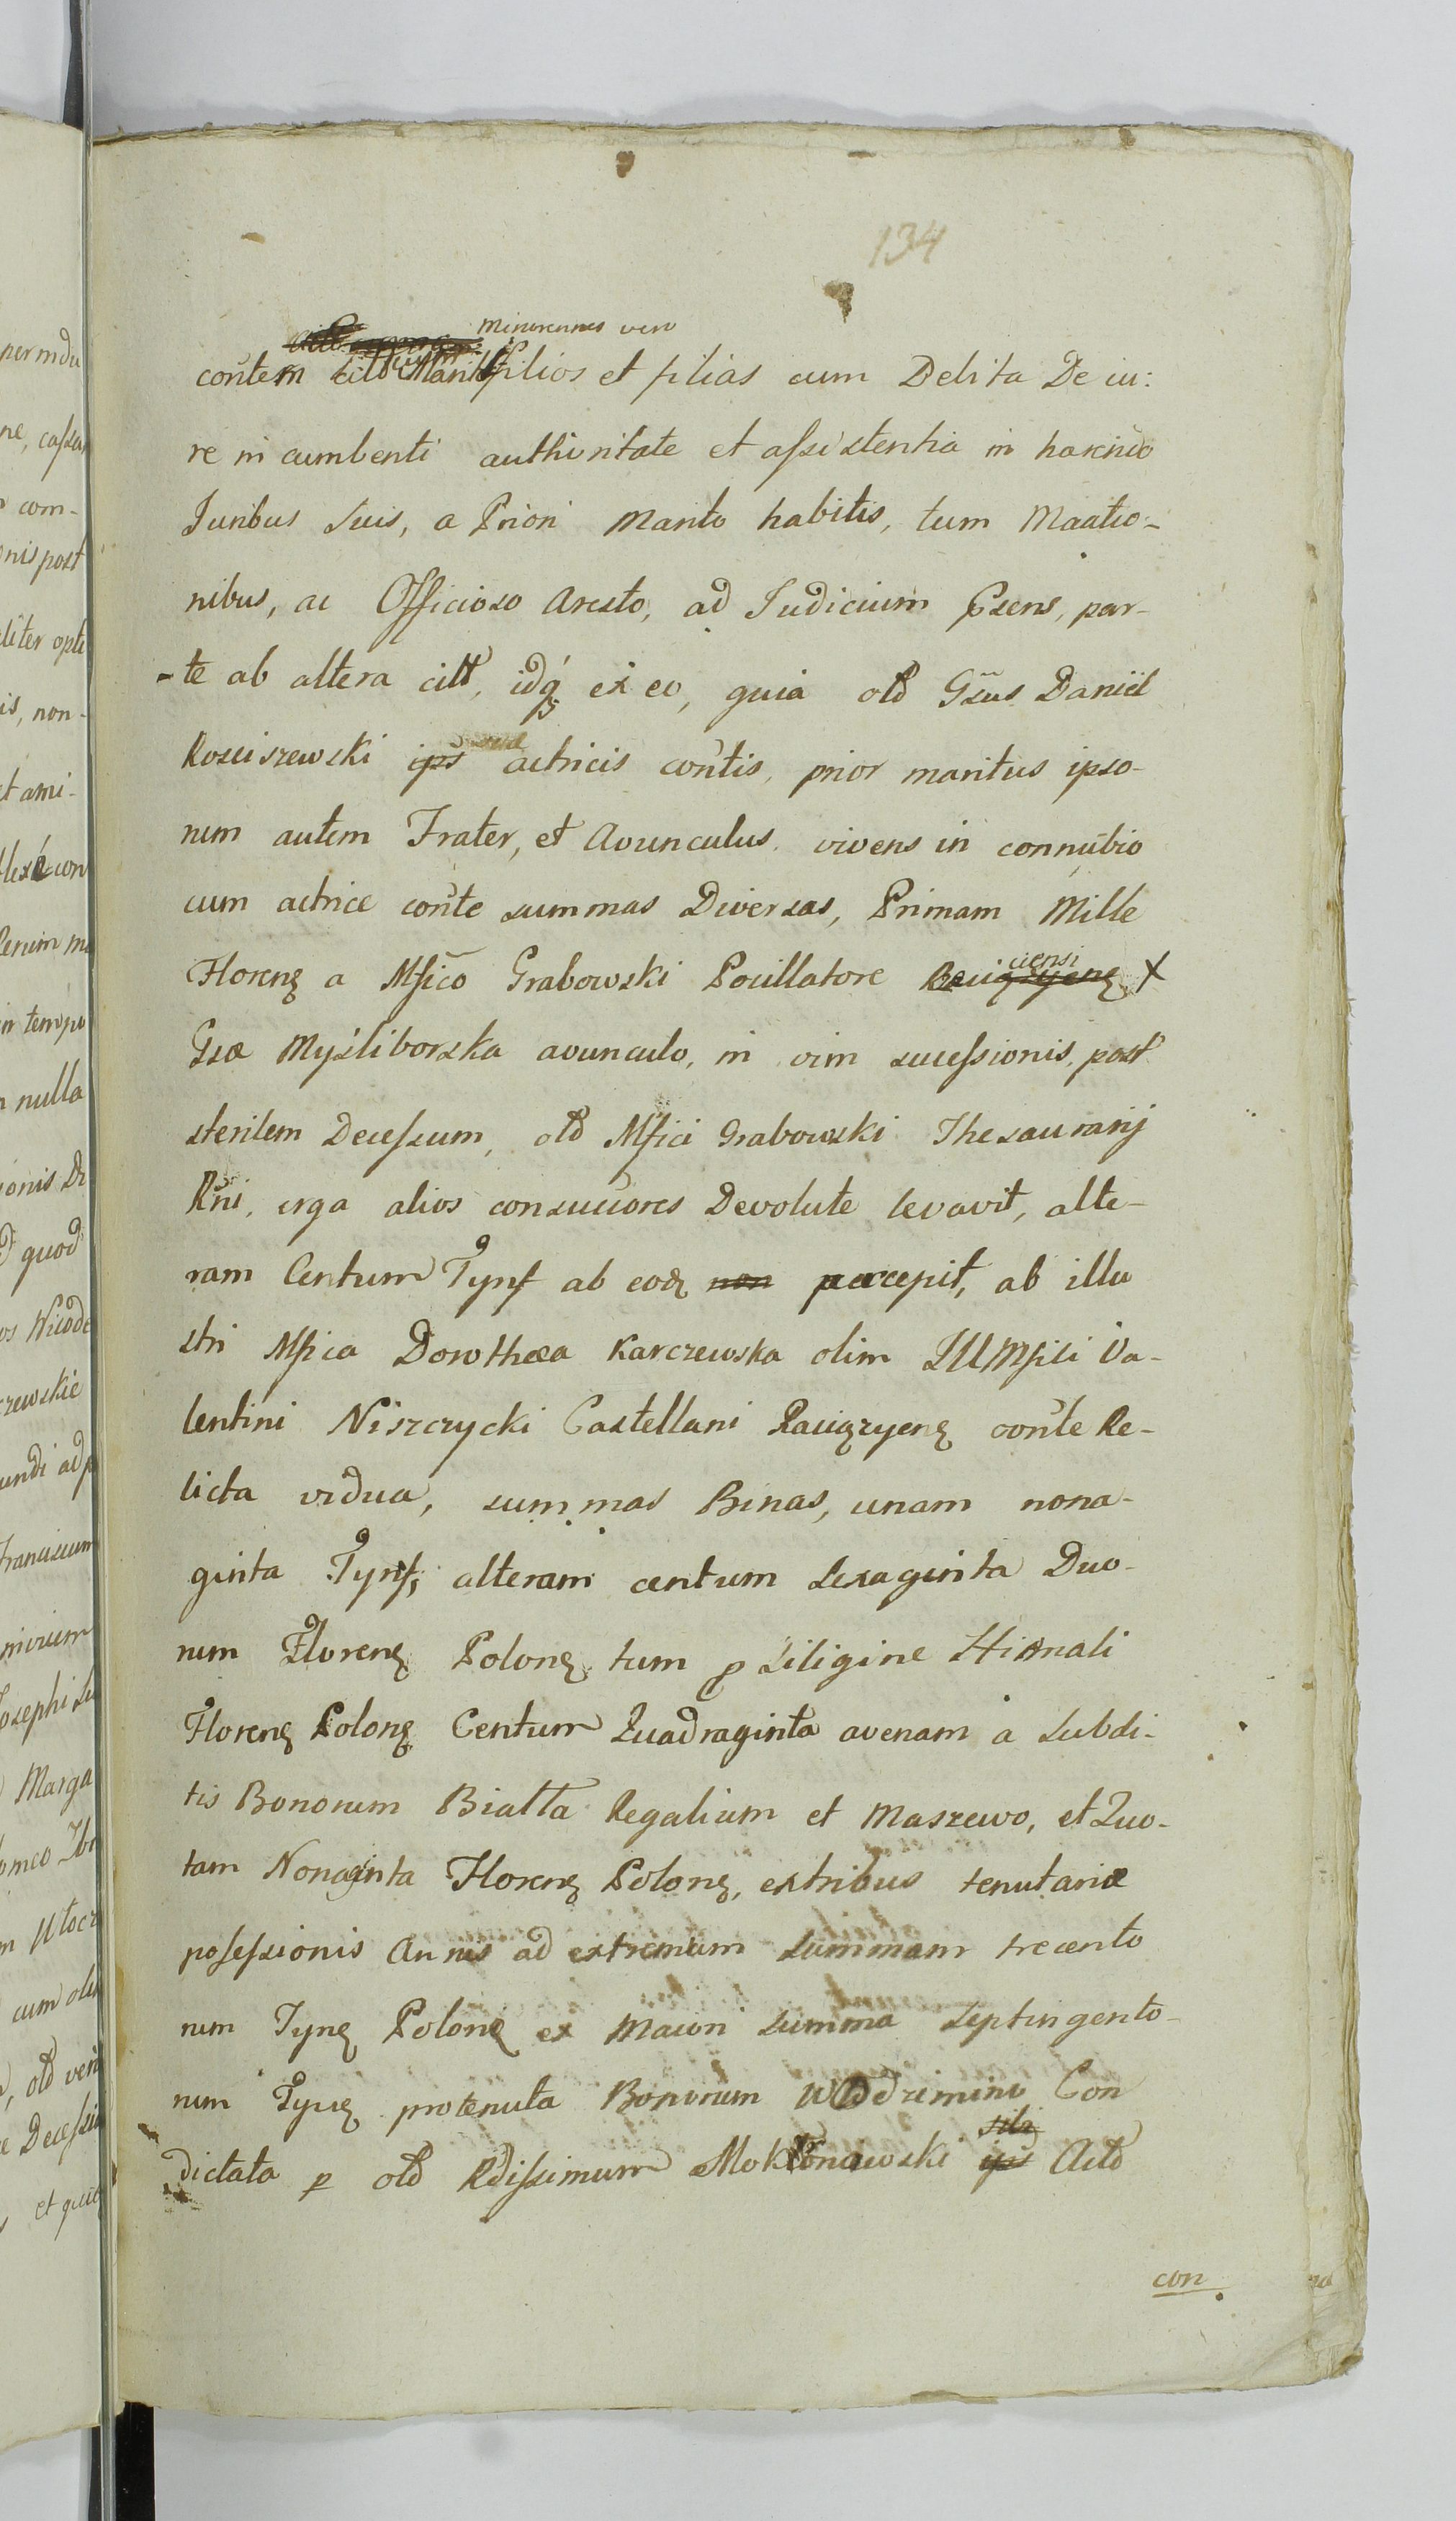 134
minorennes vero
contem filios et filias cum Debita De iu:
re in cumbenti authoritate et assistentia in harend
Juribus suis, a Priori Marito habitis, tum Maatio-
nibus, ac Officioso Aresto, ad Judicium Psens, par-
te ab altera citt, idq ex eo, quia old Gsus Daniel
Rosciszewski ips actricis contis, prior maritus ipso-
rum autem Frater, et Avunculus vivens in connubio
cum actrice conte summas Diversas, Primam Mille
Floreng a Mfico Grabowski Pocillatore ciensi X
Gsæ Myśliborska avunculo, in vim sucessionis, post
sterilem Decessum, old Mfici Grabowski Thesaurarij
Rni, erga alios consuccores Devolute levavit, alte-
ram Centum Tynf ab eod non percepit, ab illu
stri Mfica Dorothæa Karczewska olim IllMfici Va-
lentini Niszczycki Castellani Raciązyeng conte Re-
licta vidua, summas Binas, unam nona-
ginta Tynf, alteram centum sexaginta Duo-
rum Floreng Polong tum p siligine Hiemali
Floreng Polong Centum Quadraginta avenam a subdi-
tis Bonorum Białła Regalium et Maszewo, et Quo-
tam Nonaginta Floreng Polong, extribus tenutariæ
possessionis Annis ad extremum summam trecento
rum Tyng Polong ex Maiori summa septingento-
rum Tyng protenuta Bonorum Woddzimino Con
dictata p old Rdissimum Mokronowski ips Acto
con